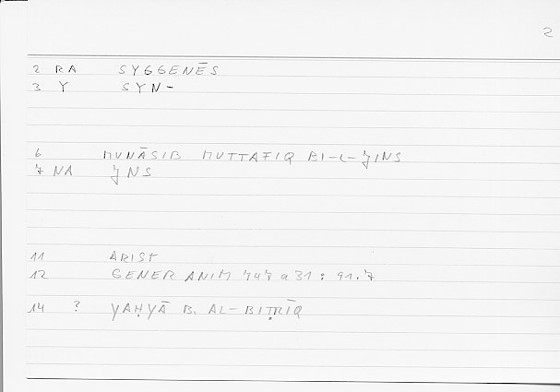 2
2 RA SYGGENĒS
3 Y SYN-
6 MUNĀSIB MUTTAFIQ BI-L-ǰINS
7 NA ǰNS
11 ARIST
12 GENER ANIM 747 a31 : 91.7
14 ? YAḤYĀ B. AL-BIṬRĪQ